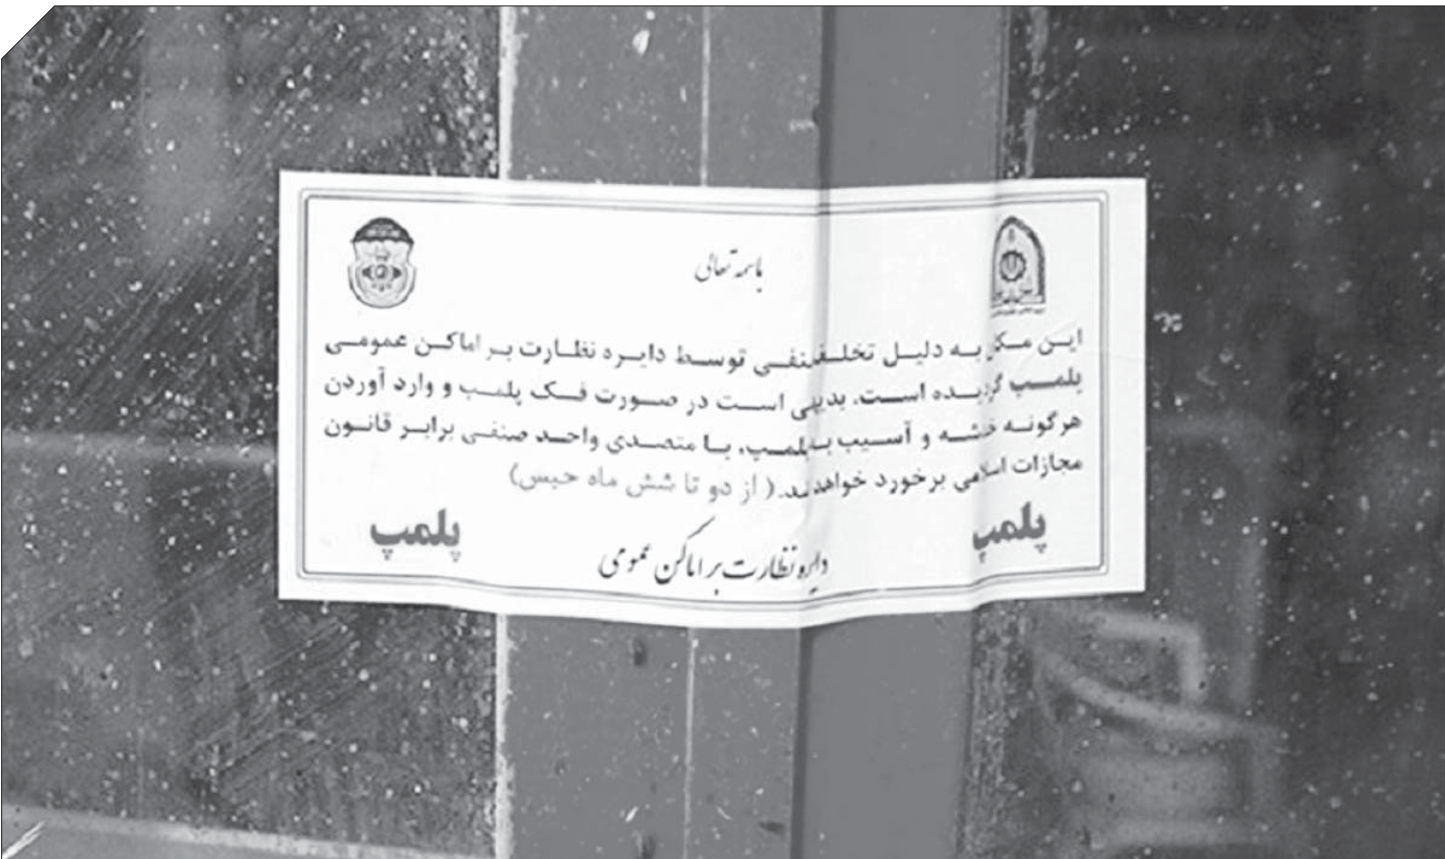 باسمه تعالی
این مکان به دلیل تخلف صنفی توسط دایره نظارت بر اماکن عمومی
پلمپ گردیده است. بدیهی است در صورت فک پلمپ و وارد آوردن
هرگونه خدشه و آسیب به پلمپ، با متصدی واحد صنفی برابر قانون
مجازات اسلامی برخورد خواهد شد.( از دو تا شش ماه حبس)
پلمپ
پلمپ
دایره نظارت بر اماکن عمومی